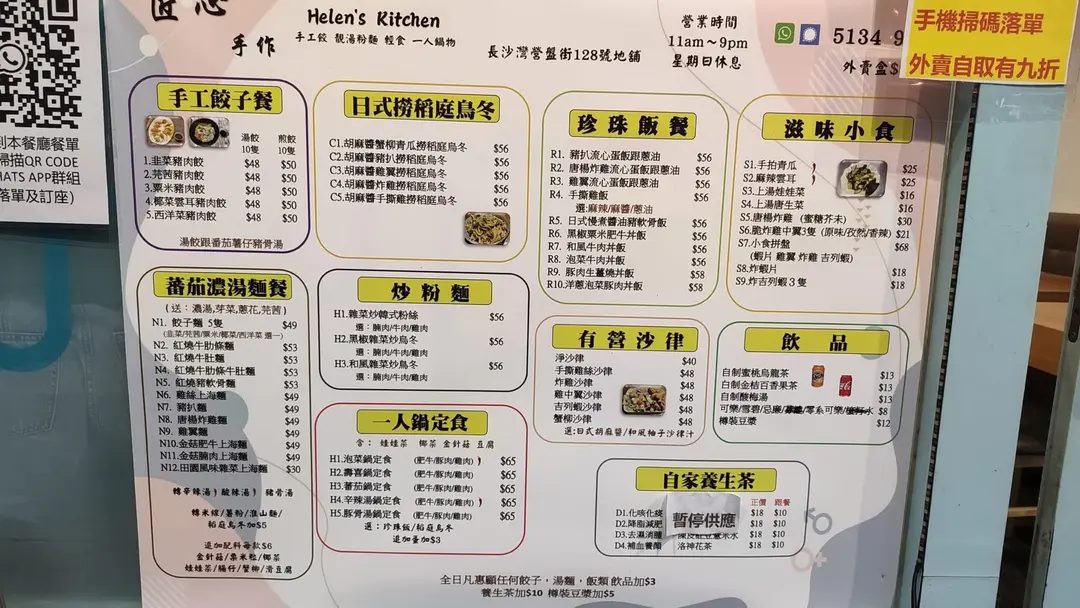 匠心
手作
Helen's Kitchen
手工餃 靚湯粉麵 輕食 一人鍋物
長沙灣營盤街128號地舖
營業時間
11am～9pm
星期日休息
5134 9
外賣盒$
手機掃碼落單
外賣自取有九折
到本餐廳餐單
掃描QR CODE
HATS APP群組
落單及訂座)
手工餃子餐
湯餃 煎餃
10隻 10隻
1.韭菜豬肉餃 $48 $50
2.芫茜豬肉餃 $48 $50
3.粟米豬肉餃 $48 $50
4.椰菜雲耳豬肉餃 $48 $50
5.西洋菜豬肉餃 $48 $50
湯餃跟番茄薯仔豬骨湯
日式撈稻庭烏冬
C1.胡麻醬蟹柳青瓜撈稻庭烏冬 $56
C2.胡麻醬豬扒撈稻庭烏冬 $56
C3.胡麻醬雞翼撈稻庭烏冬 $56
C4.胡麻醬炸雞撈稻庭烏冬 $56
C5.胡麻醬手撕雞撈稻庭烏冬 $56
珍珠飯餐
R1. 豬扒流心蛋飯跟蔥油 $56
R2. 唐楊炸雞流心蛋飯跟蔥油 $56
R3. 雞翼流心蛋飯跟蔥油 $56
R4. 手撕雞飯 $56
選:麻辣/麻醬/蔥油
R5. 日式慢煮醬油豬軟骨飯 $56
R6. 黑椒粟米肥牛丼飯 $56
R7. 和風牛肉丼飯 $56
R8. 泡菜牛肉丼飯 $56
R9. 豚肉生薑燒丼飯 $58
R10.洋蔥泡菜豚肉丼飯 $58
滋味小食
S1.手拍青瓜 $25
S2.麻辣雲耳 $25
S3.上湯娃娃菜 $16
S4.上湯唐生菜 $16
S5.唐楊炸雞 (蜜糖芥末) $30
S6.脆炸雞中翼3隻 (原味/孜然/香辣) $21
S7.小食拼盤 $68
(蝦片 雞翼 炸雞 吉列蝦)
S8.炸蝦片 $18
S9.炸吉列蝦３隻 $18
蕃茄濃湯麵餐
(送：濃湯,芽菜,蔥花,芫茜)
N1. 餃子麵 5隻 $49
(韭菜/芫茜/粟米/椰菜/西洋菜 選一)
N2. 紅燒牛肋條麵 $53
N3. 紅燒牛肚麵 $53
N4. 紅燒牛肋條牛肚麵 $53
N5. 紅燒豬軟骨麵 $53
N6. 雞絲上海麵 $49
N7. 豬扒麵 $49
N8. 唐楊炸雞麵 $49
N9. 雞翼麵 $49
N10.金菇肥牛上海麵 $49
N11.金菇腩肉上海麵 $49
N12.田園風味雜菜上海麵 $30
轉辛辣湯 酸辣湯 豬骨湯
轉米線/薯粉/淮山麵/
稻庭烏冬加$5
追加配料每款$6
金針菇/粟米粒/椰菜
娃娃菜/腸仔/蟹柳/滑豆腐
炒粉麵
H1.雜菜炒韓式粉絲 $56
選：腩肉/牛肉/雞肉
H2.黑椒雜菜炒烏冬 $56
選：腩肉/牛肉/雞肉
H3.和風雜菜炒烏冬 $56
選：腩肉/牛肉/雞肉
一人鍋定食
含： 娃娃菜 椰菜 金針菇 豆腐
H1.泡菜鍋定食 (肥牛/豚肉/雞肉) $65
H2.壽喜鍋定食 (肥牛/豚肉/雞肉) $65
H3.蕃茄鍋定食 (肥牛/豚肉/雞肉) $65
H4.辛辣湯鍋定食 (肥牛/豚肉/雞肉) $65
H5.豚骨湯鍋定食 (肥牛/豚肉/雞肉) $65
選：珍珠飯/稻庭烏冬
追加蛋加$3
有營沙律
淨沙律 $40
手撕雞絲沙律 $48
炸雞沙律 $48
雞中翼沙律 $48
吉列蝦沙律 $48
蟹柳沙律 $48
選:日式胡麻醬/和風柚子沙律汁
飲品
自制蜜桃烏龍茶 $13
自制金桔百香果茶 $13
自制酸梅湯 $13
可樂/雪碧/忌廉/零系可樂/水 $8
樽裝豆漿 $12
自家養生茶
正價 跟餐
D1.化咳化痰 $18 $10
D2.降脂減肥 $18 $10
D3.去濕消腫 $18 $10
D4.補血養顏 洛神花茶 $18 $10
暫停供應
全日凡惠顧任何餃子，湯麵，飯類 飲品加$3
養生茶加$10 樽裝豆漿加$5